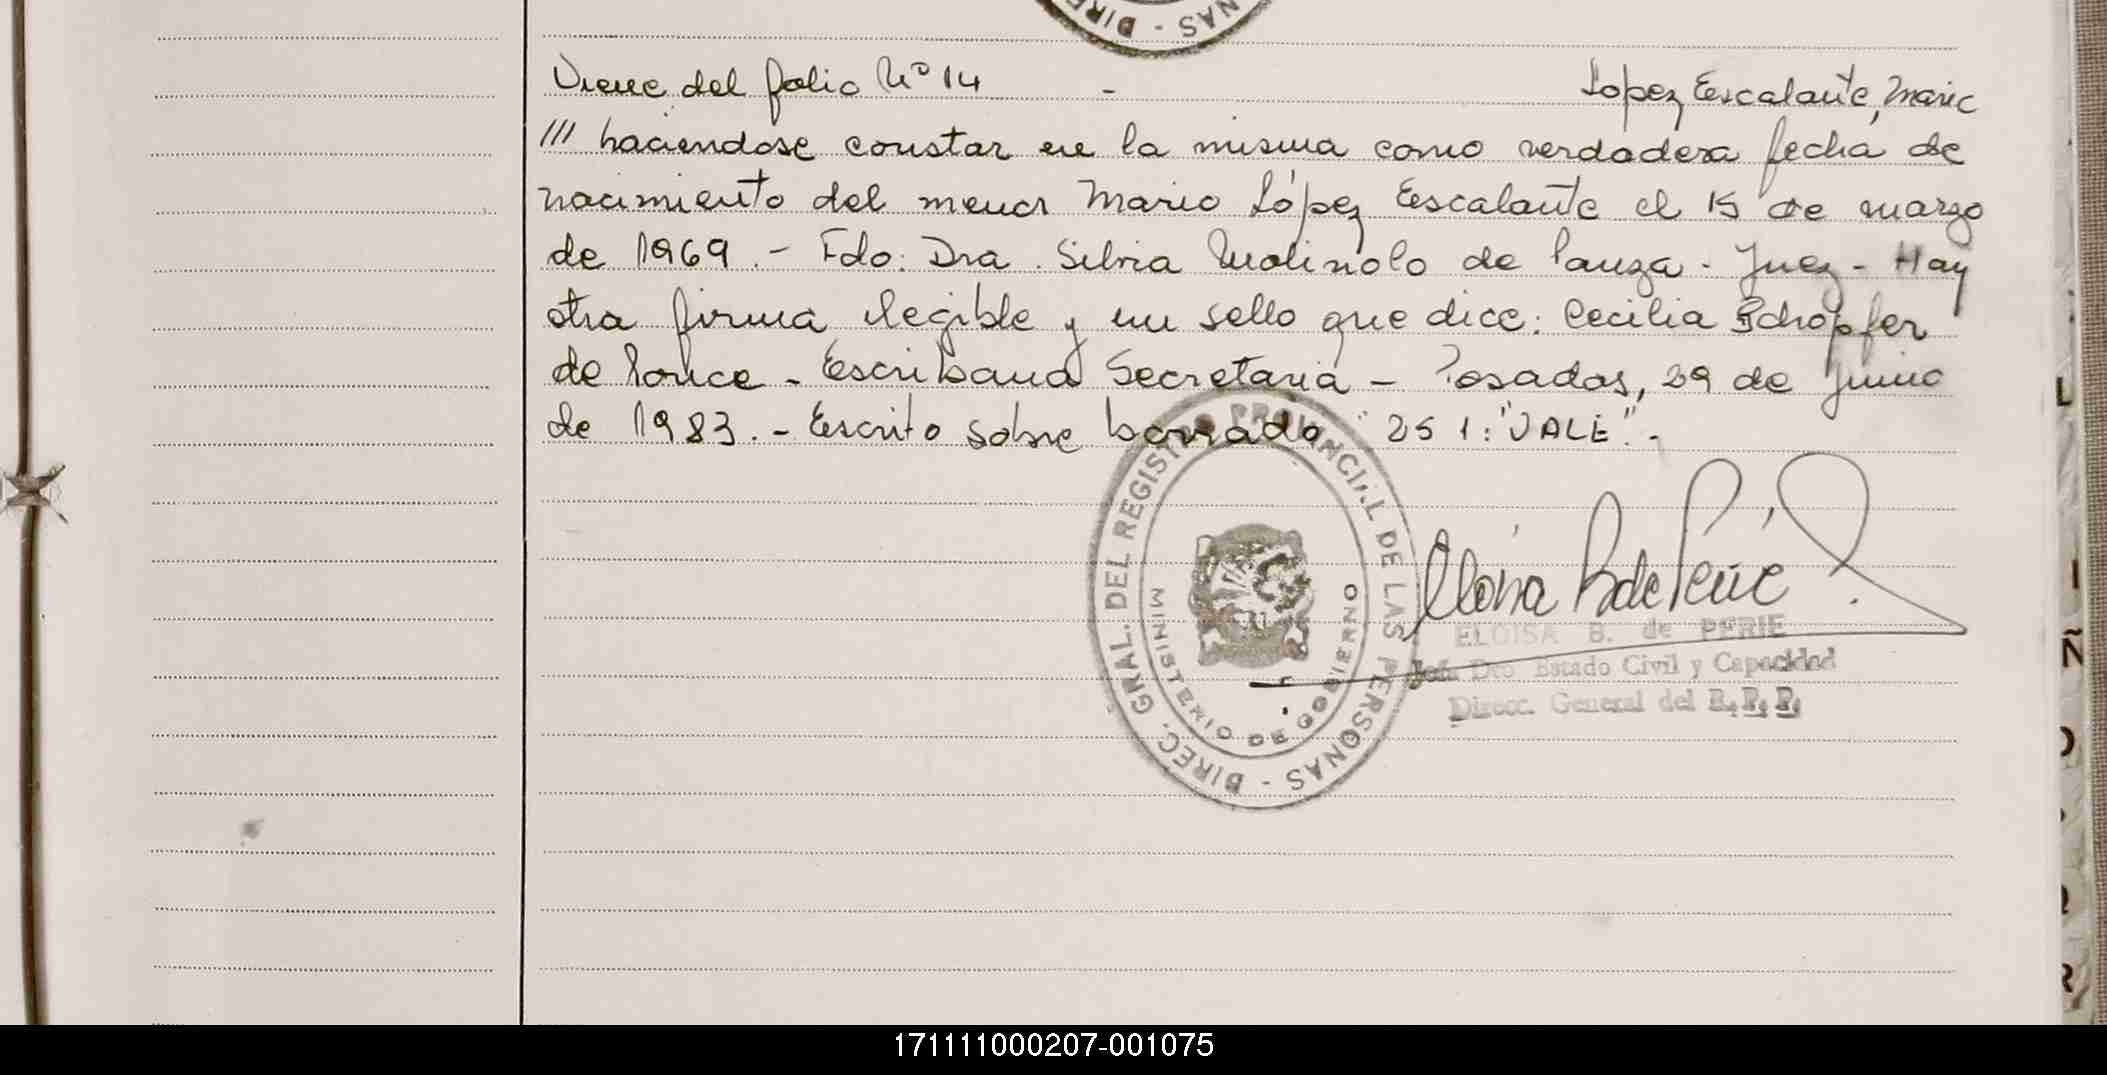 DIREC
NAS -
Viene del folio Nº 14 - López Escalante, Mario
/// haciendose constar en la misma como verdadera fecha de
nacimiento del menor Mario López Escalante el 15 de marzo
de 1969.- Fdo: Dra. Silvia Molinolo de Pauza - Juez - Hay
otra firma ilegible y un sello que dice: Cecilia Schöpfer
de Ponce - Escribana Secretaria - Posadas, 29 de junio
de 1983.- Escrito sobre borrado "251: "VALE".-
DIREC. GRAL. DEL REGISTRO PROVINCIAL DE LAS PERSONAS -
MINISTERIO DE GOBIERNO
ELOISA B. de PERIE
Jefa Dto Estado Civil y Capacidad
Direcc. General del R.P.P.
171111000207-001075